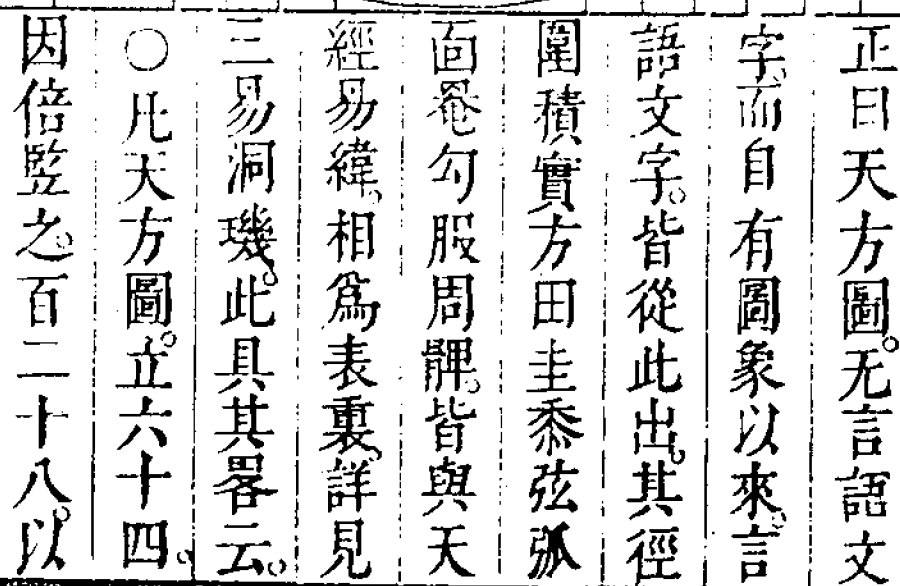 正曰天方圖。无言語文
字。而自有圖象以來。言
語文字。皆從此出。其徑
圍積實方田圭黍弦弧
面卷勾股周髀。皆與天
經易緯。相爲表裏。詳見
三易洞璣。此具其畧云。
○凡天方圖。立六十四。
因倍竪之。百二十八。以